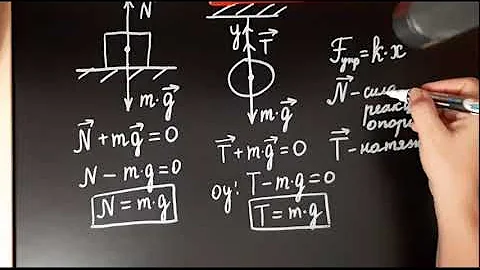 N
m·g⃗
N⃗ + mg⃗ = 0
N - m·g = 0
N = m·g
y
T⃗
m·g⃗
T⃗ + mg⃗ = 0
oy: T - m·g = 0
T = m·g
Fупр = k·x
N⃗ - сила
реак
опор
T⃗ - натяж